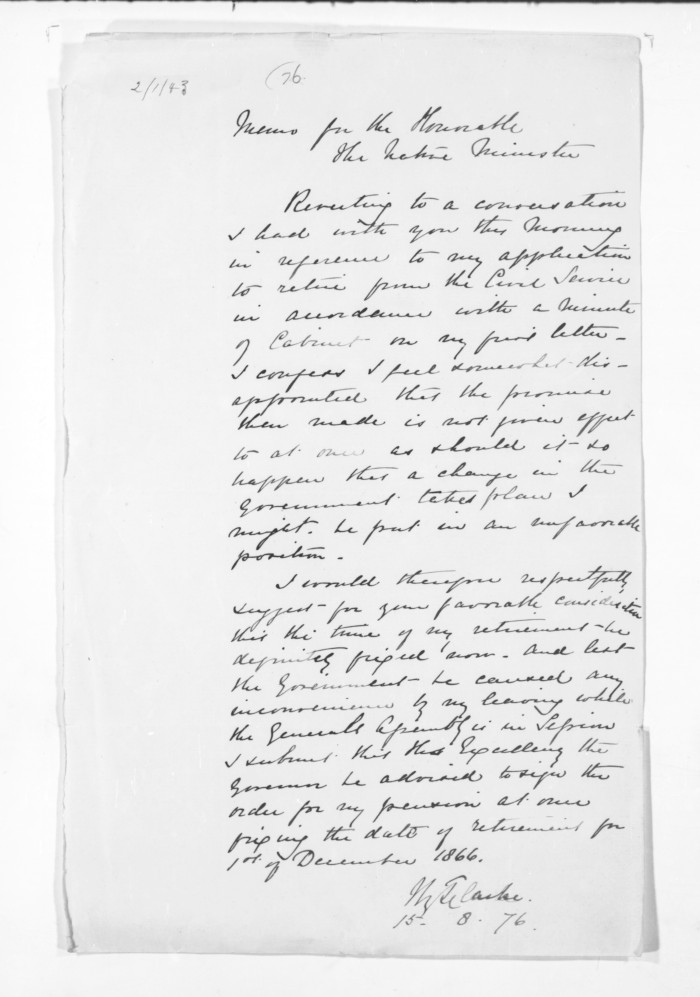 2/1/43
(76.
Memo for the Honorable
the Native Minister
Reverting to a conversation
I had with you this Morning
in reference to my application
to retire from the Civil Service
in accordance with a Minute
of Cabinet on my first letter -
I confess I feel somewhat dis-
appointed that the promise
then made is not given effect
to at once as should it so
happen that a change in the
Government takes place I
might be put in an unfavorable
position -
I would therefore respectfully
suggest for your favorable consideration
that the time of my retirement be
definitely fixed now - And lest
the Government be caused any
inconvenience by my leaving while
the General Assembly is in Session
I submit that His Excellency the
Governor be advised to sign the
order for my pension at once
fixing the date of retirement for
1st of December 1866.
Clarke.
15. 8. 76.